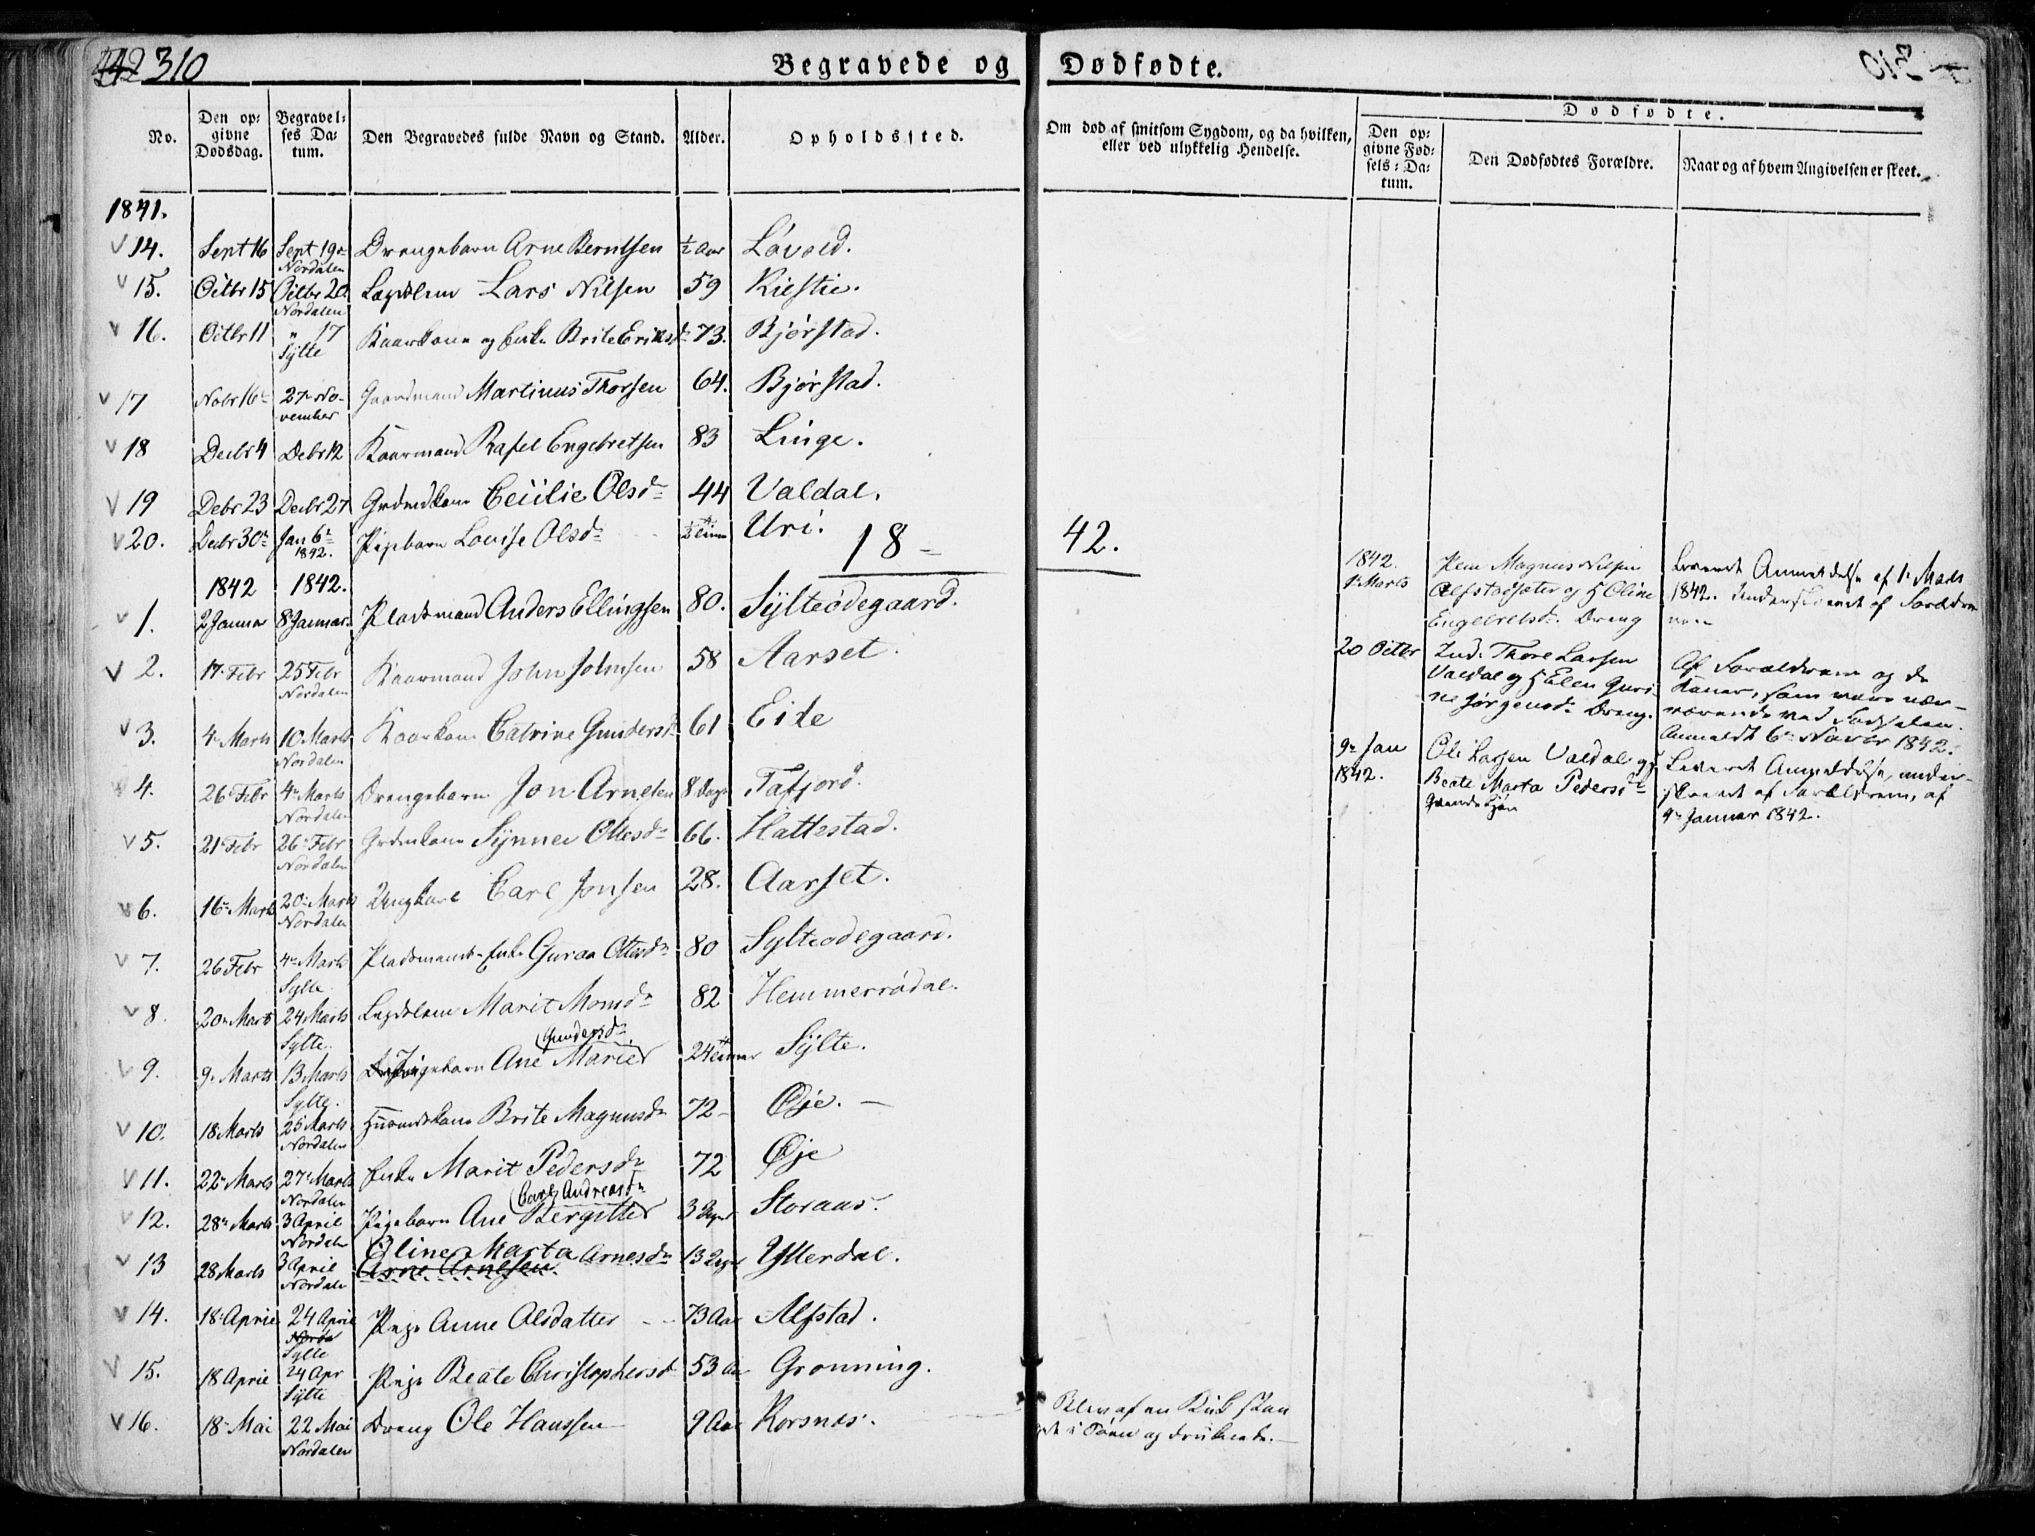 310
Begravede og Dødfødte.
No.
Den op-
givne
Dødsdag.
Begravel-
ses Da-
tum.
Den Begravedes fulde Navn og Stand.
Alder.
Opholdssted.
Om død af smitsom Sygdom, og da hvilken,
eller ved ulykkelig Hendelse.
Dødfødte.
Den op-
givne Fød-
sels-Da-
tum.
Den Dødfødtes Forældre.
Naar og af hvem Angivelsen er skeet.
1841.
14. Sept 16 Sept 19 Nordalen Drengebarn Arne Berntsen ½ Aar Løvold.
15. Octbr 15 Octbr 20 Nordalen Lægdslem Lars Nilsen 59 Kilstie.
16. Octbr 11 " 17 Sylte Kaarkone og Enke Brite Eriksd 73. Bjørstad.
17 Nobr 16 27 November Gaardmand Martinus Thorsen 64. Bjørstad.
18 Decbr 4 Debr 12 Kaarmand Rasel Engebretsen 83 Linge.
19 Debr 23 Decbr 27 Grdmdkone Cecilie Olsd 44 Valdal.
20. Decbr 30 Jan 6 1842. Pigebarn Lovise Olsd ½ Uri.
1842 1842. 18 42.
1. 2 Januar 8 Januar. Pladsmand Anders Ellingsen 80. Sylteødegaard.
2. 17 Febr 25 Febr Nordalen Kaarmand John Johnsen 58 Aarset.
3. 4 Marts 10 Marts Nordalen Kaarkone Catrine Gundersd 61 Eide
4. 26 Febr 4 Marts Nordalen Drengebarn Jon Arnesen 8 Dage Tafjord.
5. 21 Febr 26 Febr Nordalen Grdmkone Synnev Ottesd 66. Hattestad.
6. 16 Marts 20 Marts Nordalen Ungkarl Carl Jonsen 28. Aarset.
7. 26 Febr 4 Marts Sylte Pladsmands Enke Guroa Ottesd 80 Sylteødegaard.
8. 20 Marts 24 Marts Sylte. Lægdslem Marit Monsd 82 Hemmerrødal.
9. 9 Marts 13 Marts Sylte. Pigebarn Ane Marie Gundersd. 24 Timer Sylte.
10. 18 Marts 25 Marts Nordalen Huusmdskone Brite Magnusd 72 Øje.
11. 22 Marts 27 Marts Nordalen Enke Marit Pedersd 72 Øje
12. 28 Marts 3 April Nordalen Pigebarn Ane Bergitte Carl Andreasd 3 Dage Storaas.
13 28 Marts 3 April Nordalen Oline Marta Arnesd Arne Arnesen 13 Dage Ytterdal.
14. 18 April 24 April Sylte Pige Anne Olsdatter 73 Aar Alfstad.
15. 18 April 24 Apr Sylte Pige Beate Christophersd 53 Aar Grønning.
16. 18 Mai 22 Mai Nordalen Dreng Ole Hanssen 9 Aar Korsnæs.
Blev af en
i Søen og druknede.
1842.
1 Marts
Magnus Nilsen
Alfstadsæter og H Oline
Engebretsd. Dreng
Leveret Anmeldelse af 1 Marts
1842. Underskrevet af Forældrene
20 Octbr
Ind. Thore Larsen
Valdal og H Elen Guri-
ne Jørgensd. Dreng.
Af Forældrene og de
Koner, som vare nær-
værende ved Fødselen.
Anmeldt 6 Novbr 1842.
9 Jan
1842.
Ole Larsen Valdal og
Beate Marta Pedersd
Leveret Anmeldelse, under-
skrevet af Forældrene, af
9 Januar 1842.